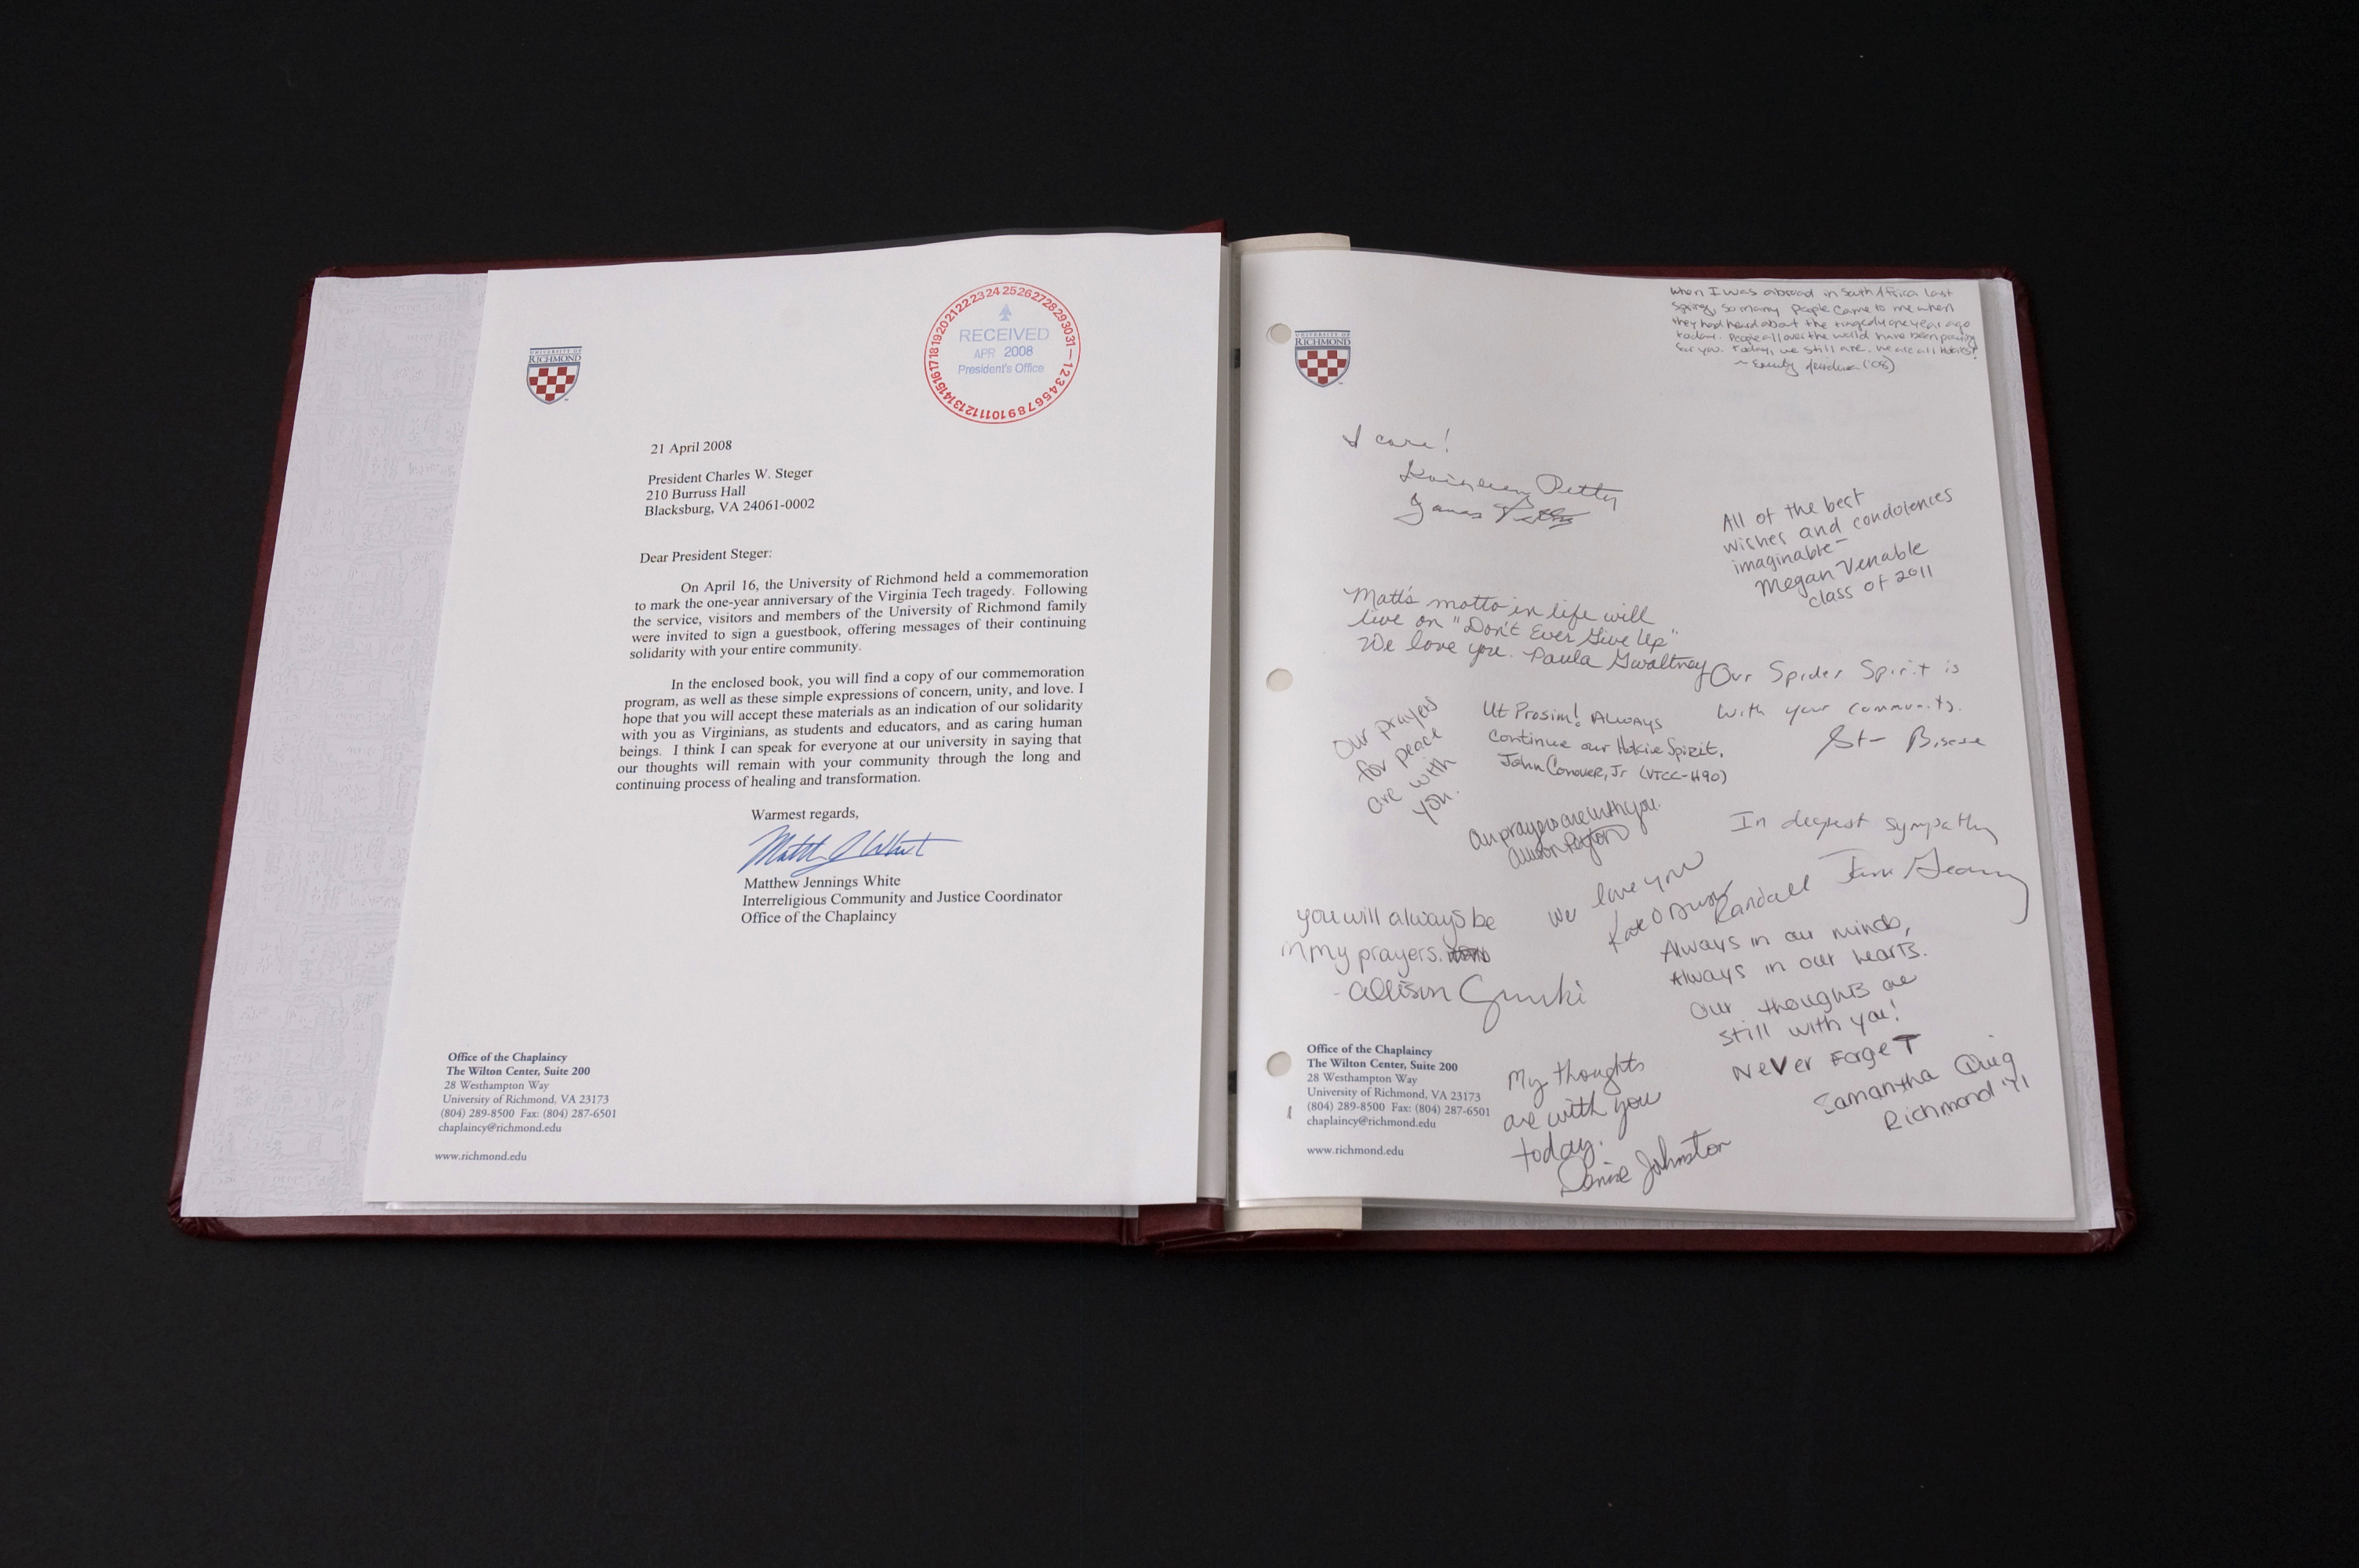 UNIVERSITY OF
RICHMOND
1 2 3 4 5 6 7 8 9 10 11 12 13 14 15 16 17 18 19 20 21 22 23 24 25 26 27 28 29 30 31
RECEIVED
APR 2008
President's Office
21 April 2008
President Charles W. Steger
210 Burruss Hall
Blacksburg, VA 24061-0002
Dear President Steger:
On April 16, the University of Richmond held a commemoration
to mark the one-year anniversary of the Virginia Tech tragedy. Following
the service, visitors and members of the University of Richmond family
were invited to sign a guestbook, offering messages of their continuing
solidarity with your entire community.
In the enclosed book, you will find a copy of our commemoration
program, as well as these simple expressions of concern, unity, and love. I
hope that you will accept these materials as an indication of our solidarity
with you as Virginians, as students and educators, and as caring human
beings. I think I can speak for everyone at our university in saying that
our thoughts will remain with your community through the long and
continuing process of healing and transformation.
Warmest regards,
Matthew Jennings White
Interreligious Community and Justice Coordinator
Office of the Chaplaincy
Office of the Chaplaincy
The Wilton Center, Suite 200
28 Westhampton Way
University of Richmond, VA 23173
(804) 289-8500 Fax: (804) 287-6501
chaplaincy@richmond.edu
www.richmond.edu
UNIVERSITY OF
RICHMOND
When I was abroad in South Africa last
spring, so many people came to me when
they had heard about the tragedy one year ago
today. People all over the world have been praying
for you. Today, we still are. We are all Hokies!
~ Emily ('08)
I care!
Petty
James Petty
All of the best
wishes and condolences
imaginable-
Megan Venable
class of 2011
Matt's motto in life will
live on "Don't Ever Give Up"
We love you. Paula Gwaltney
Our Spider Spirit is
with your community.
Our prayers
for peace
are with
you.
Ut Prosim! Always
continue our Hokie Spirit.
John Conover, Jr (VTCC-H90)
Our prayers are with you.
Allison Peyton
In deepest sympathy
We love you
Randall
you will always be
in my prayers.
- Allison
Always in our minds,
Always in our hearts.
Our thoughts are
still with you!
Never Forget
Samantha Quig
Richmond '11
My thoughts
are with you
today.
Denise Johnston
Office of the Chaplaincy
The Wilton Center, Suite 200
28 Westhampton Way
University of Richmond, VA 23173
(804) 289-8500 Fax: (804) 287-6501
chaplaincy@richmond.edu
www.richmond.edu